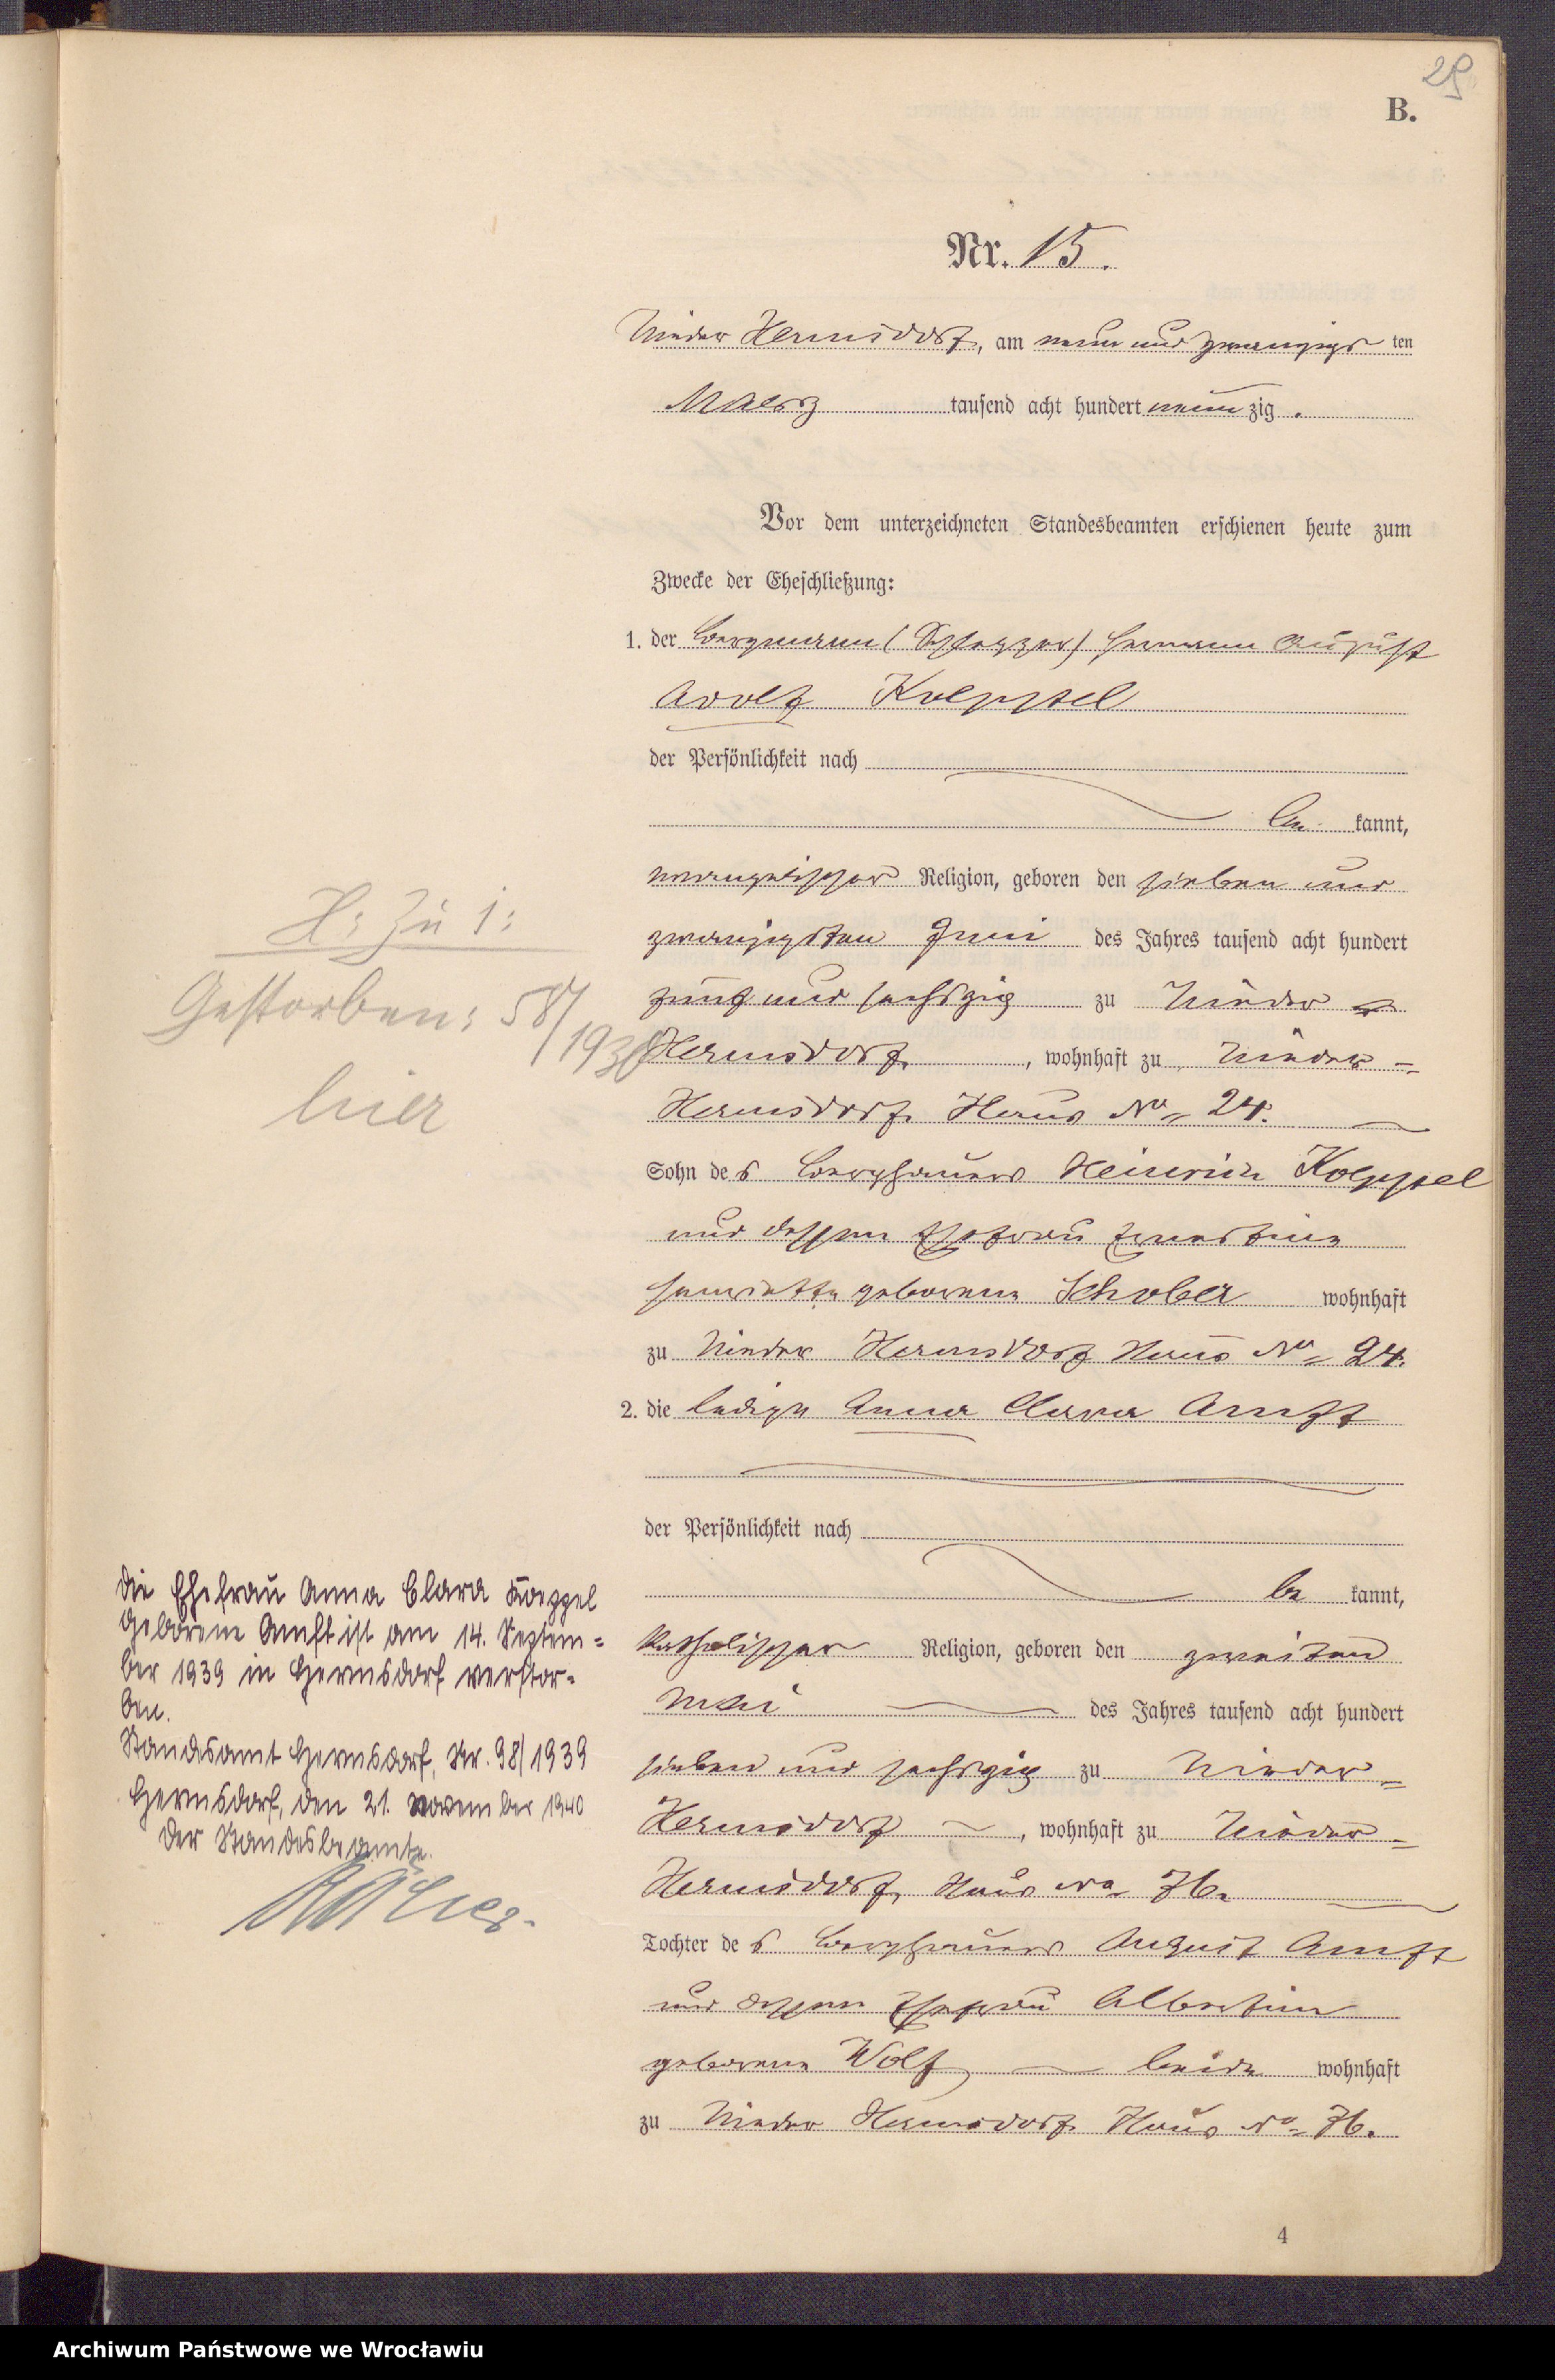 29
B.
Nr. 15.
Nieder Hermsdorf, am neun und zwanzigs ten
Maerz tausend acht hundert neun zig.
Vor dem unterzeichneten Standesbeamten erschienen heute zum
Zwecke der Eheschließung:
1. der Bergmann (Schlepper) Hermann August
Adolf Koeppel
der Persönlichkeit nach
be kannt,
evangelischer Religion, geboren den sieben und
zwanzigsten Juni des Jahres tausend acht hundert
fünf und sechszig zu Nieder
Hermsdorf, wohnhaft zu Nieder-
Hermsdorf Haus No 24.
Sohn des Berghauers Heinrich Koeppel
und dessen Ehefrau Ernestine
Henriette geborene Schober wohnhaft
zu Nieder Hermsdorf Haus No 24.
2. die ledige Anna Clara Amft
der Persönlichkeit nach
be kannt,
katholischer Religion, geboren den zweiten
Mai des Jahres tausend acht hundert
sieben und sechszig zu Nieder-
Hermsdorf, wohnhaft zu Nieder-
Hermsdorf, Haus No 76.
Tochter des Berghauers August Amft
und dessen Ehefrau Albertine
geborene Wolf beide wohnhaft
zu Nieder Hermsdorf Haus No 76.
4
H: Zu 1:
Gestorben: 58/
1930
hier
Die Ehefrau Anna Clara Koeppel
geborene Amft ist am 14. Septem=
ber 1939 in Hermsdorf verstor=
ben.
Standesamt Hermsdorf, Nr. 98/1939
Hermsdorf, den 21. November 1940
Der Standesbeamte.
Archiwum Państwowe we Wrocławiu